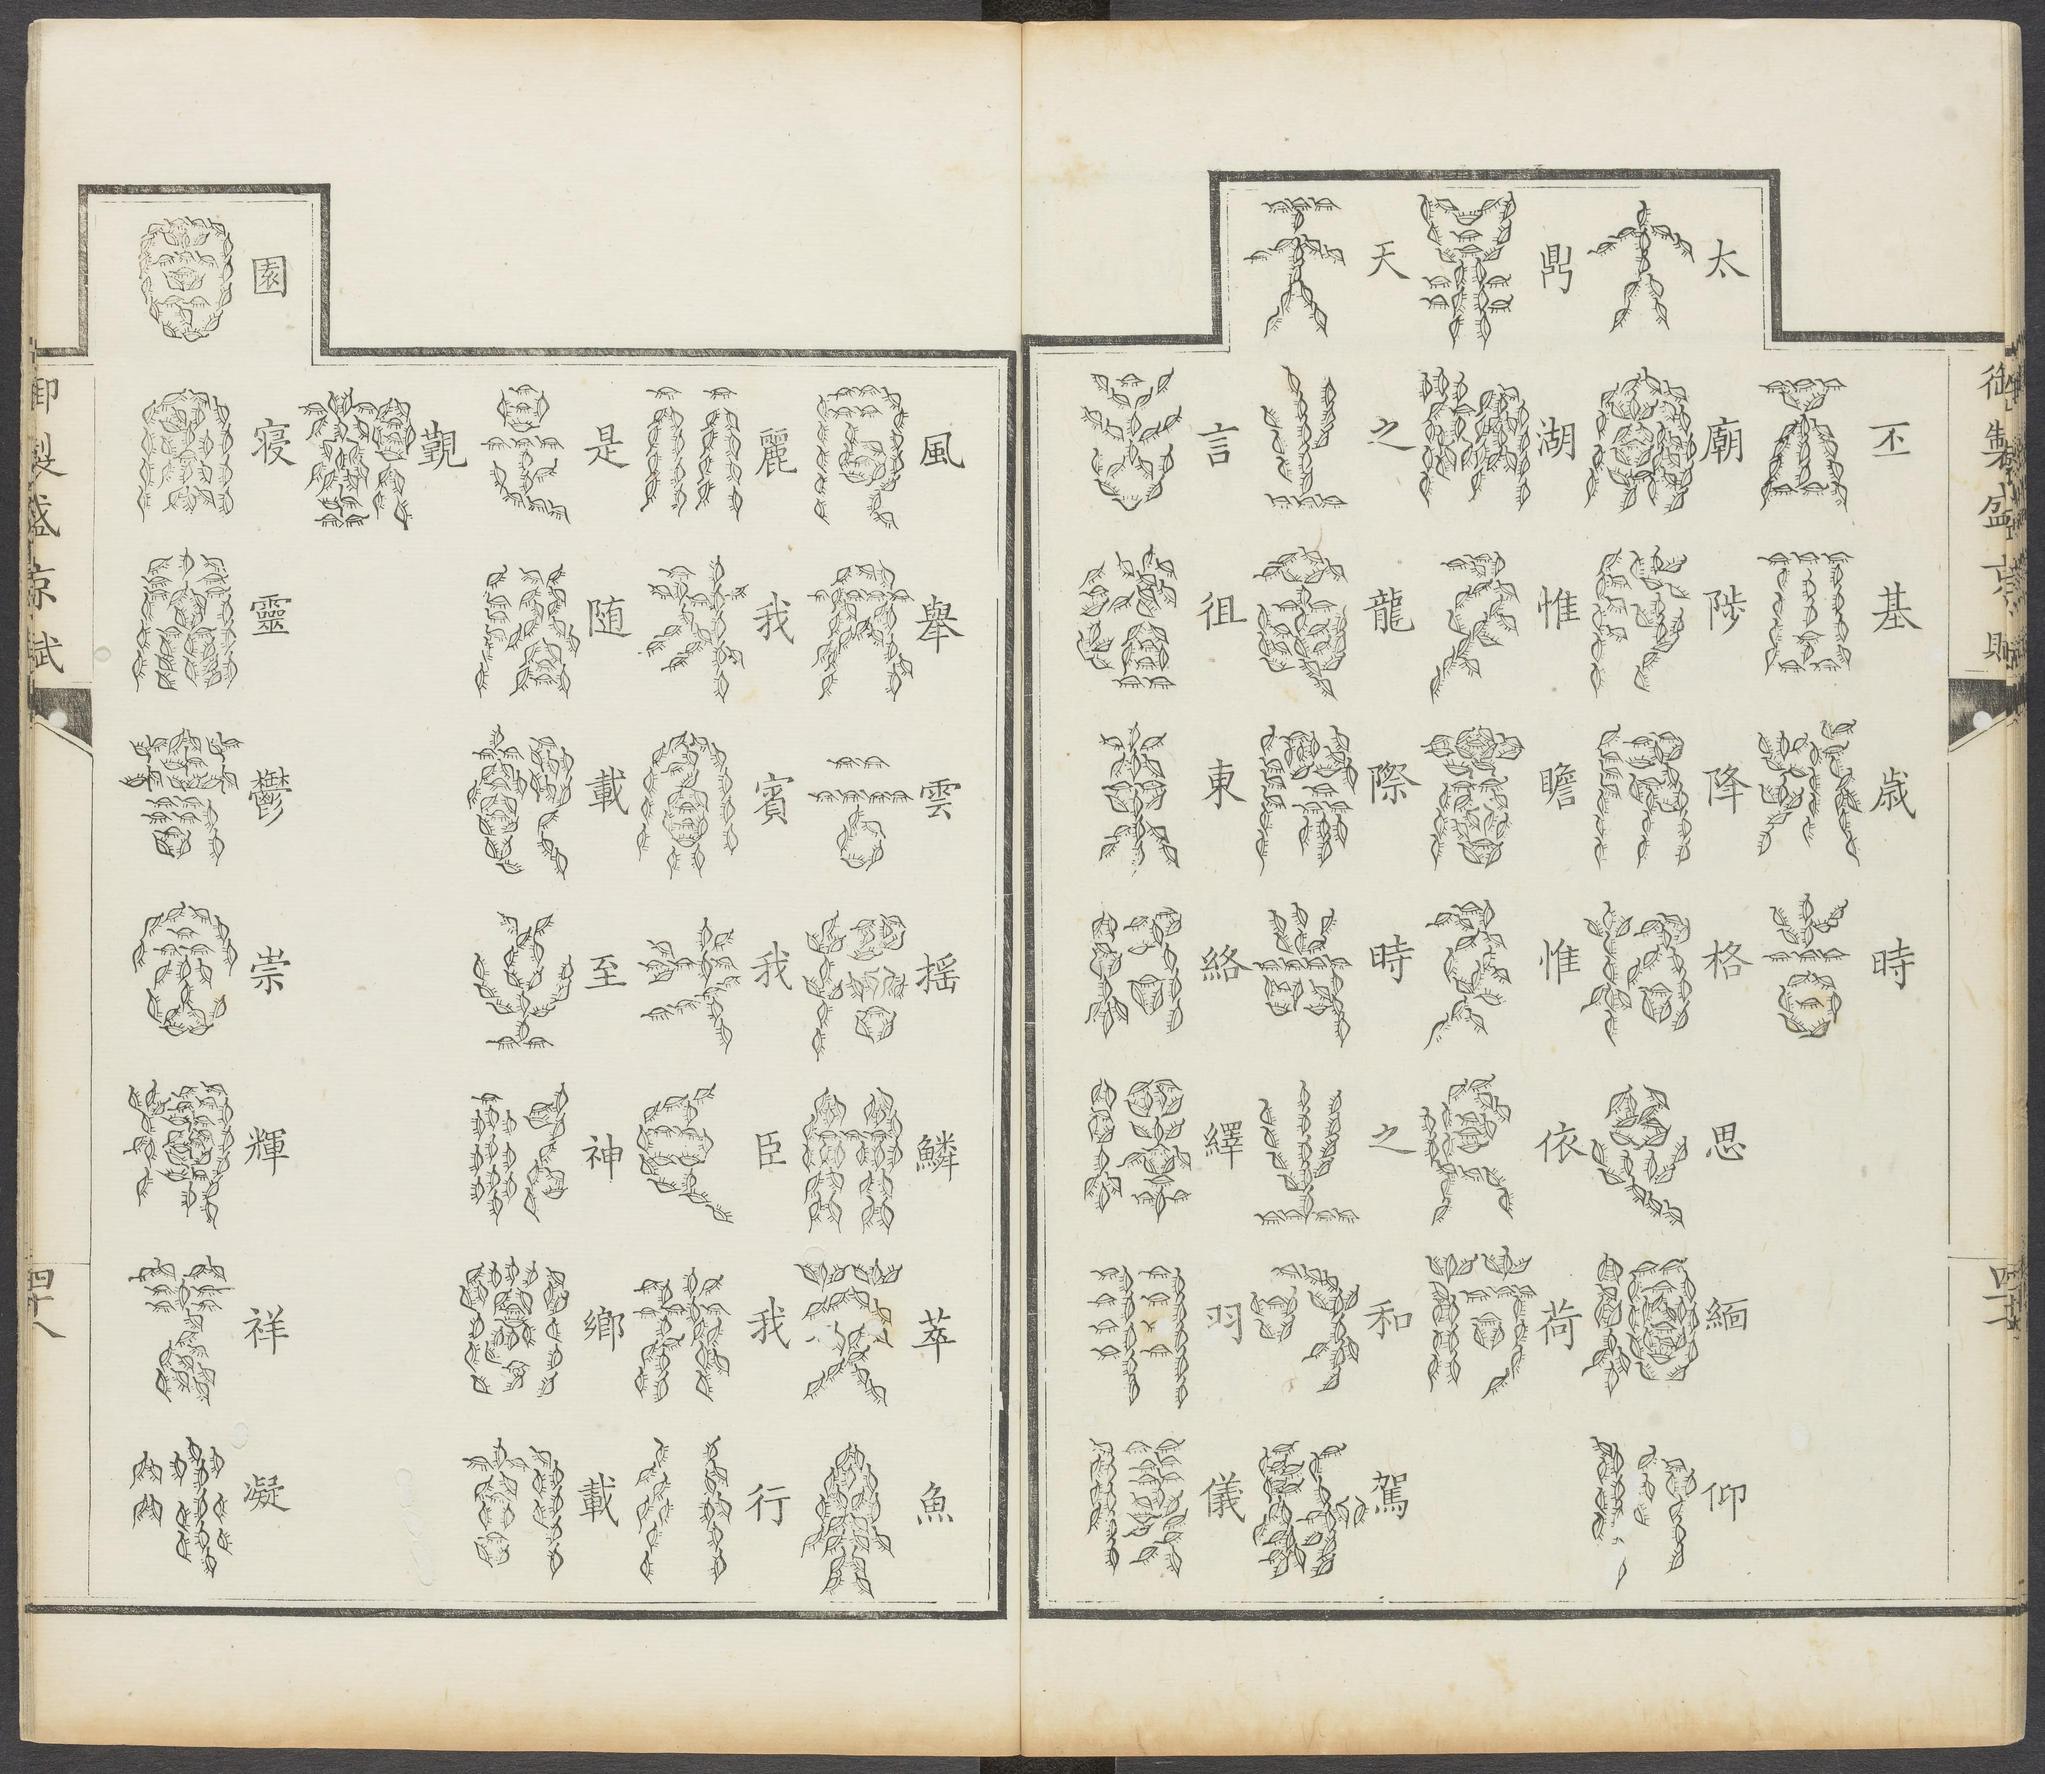 御製盛京賦
丕基歲時
太廟陟降格思緬仰
鼎湖惟瞻惟依荷
天之龍際時之和駕
言徂東絡繹羽儀
風舉雲搖鱗萃魚
麗我賓我臣我行
是随載至神鄉載
觀
園寝靈鬱崇輝祥凝
御製盛京賦
四十八